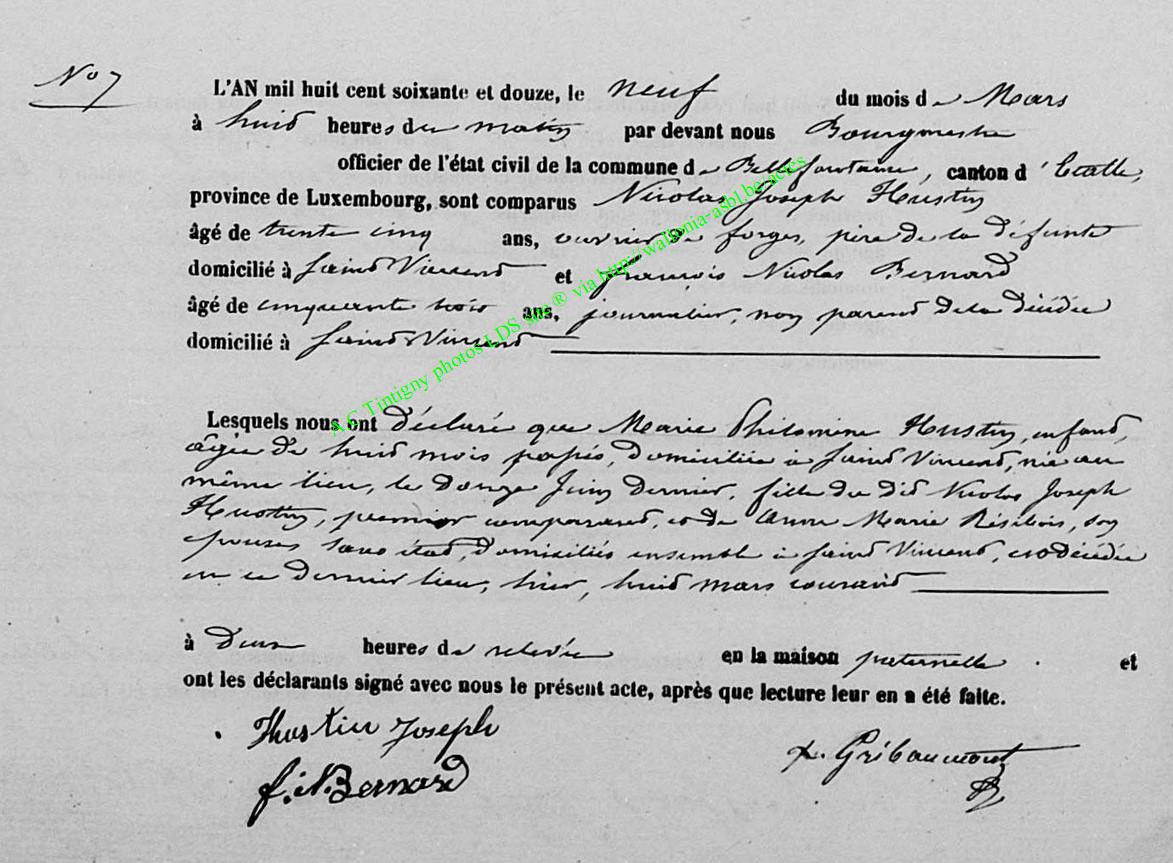 N° 7
L'AN mil huit cent soixante et douze, le neuf du mois de Mars
à huit heures du matin par devant nous Bourgmestre
officier de l'état civil de la commune de Bellefontaine, canton d'Etalle,
province de Luxembourg, sont comparus Nicolas Joseph Hustin
âgé de trente cinq ans, ouvrier de forges, père de la défunte
domicilié à Saint Vincent et François Nicolas Bernard
âgé de cinquante trois ans, journalier, non parent de la décédée
domicilié à Saint Vincent
Lesquels nous ont déclaré que Marie Philomène Hustin, enfant,
âgée de huit mois passés, domiciliée à Saint Vincent, née au
même lieu, le douze Juin dernier, fille du dit Nicolas Joseph
Hustin, premier comparant, et de Anne Marie Résibois, son
épouse, sans état, domiciliés ensemble à Saint Vincent, est décédée
en ce dernier lieu, hier, huit mars courant
à deux heures de relevée en la maison paternelle. et
ont les déclarants signé avec nous le présent acte, après que lecture leur en a été faite.
Hustin Joseph
f. N. Bernard
Gribaumont
A.G Tintigny photos LDS sur ® via http://wallonia-asbl.be/actes